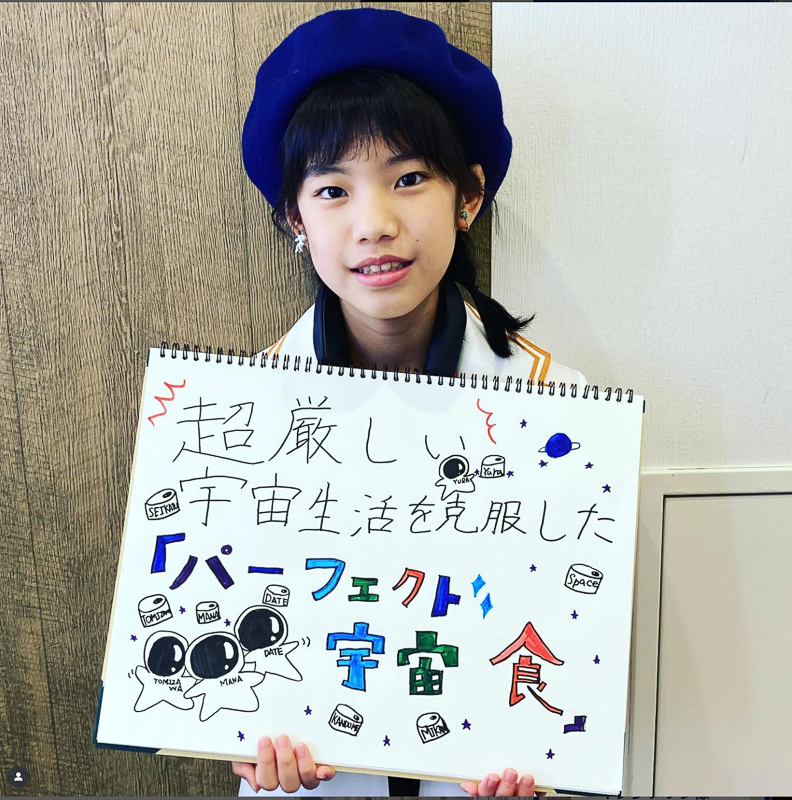 超厳しい
YURA
Yura
SEIKA
宇宙生活を克服した
「パーフェクト
Space
DATE
MANA
DATE
YOMIZA
WA
MANA
宇宙食」
KANDUME